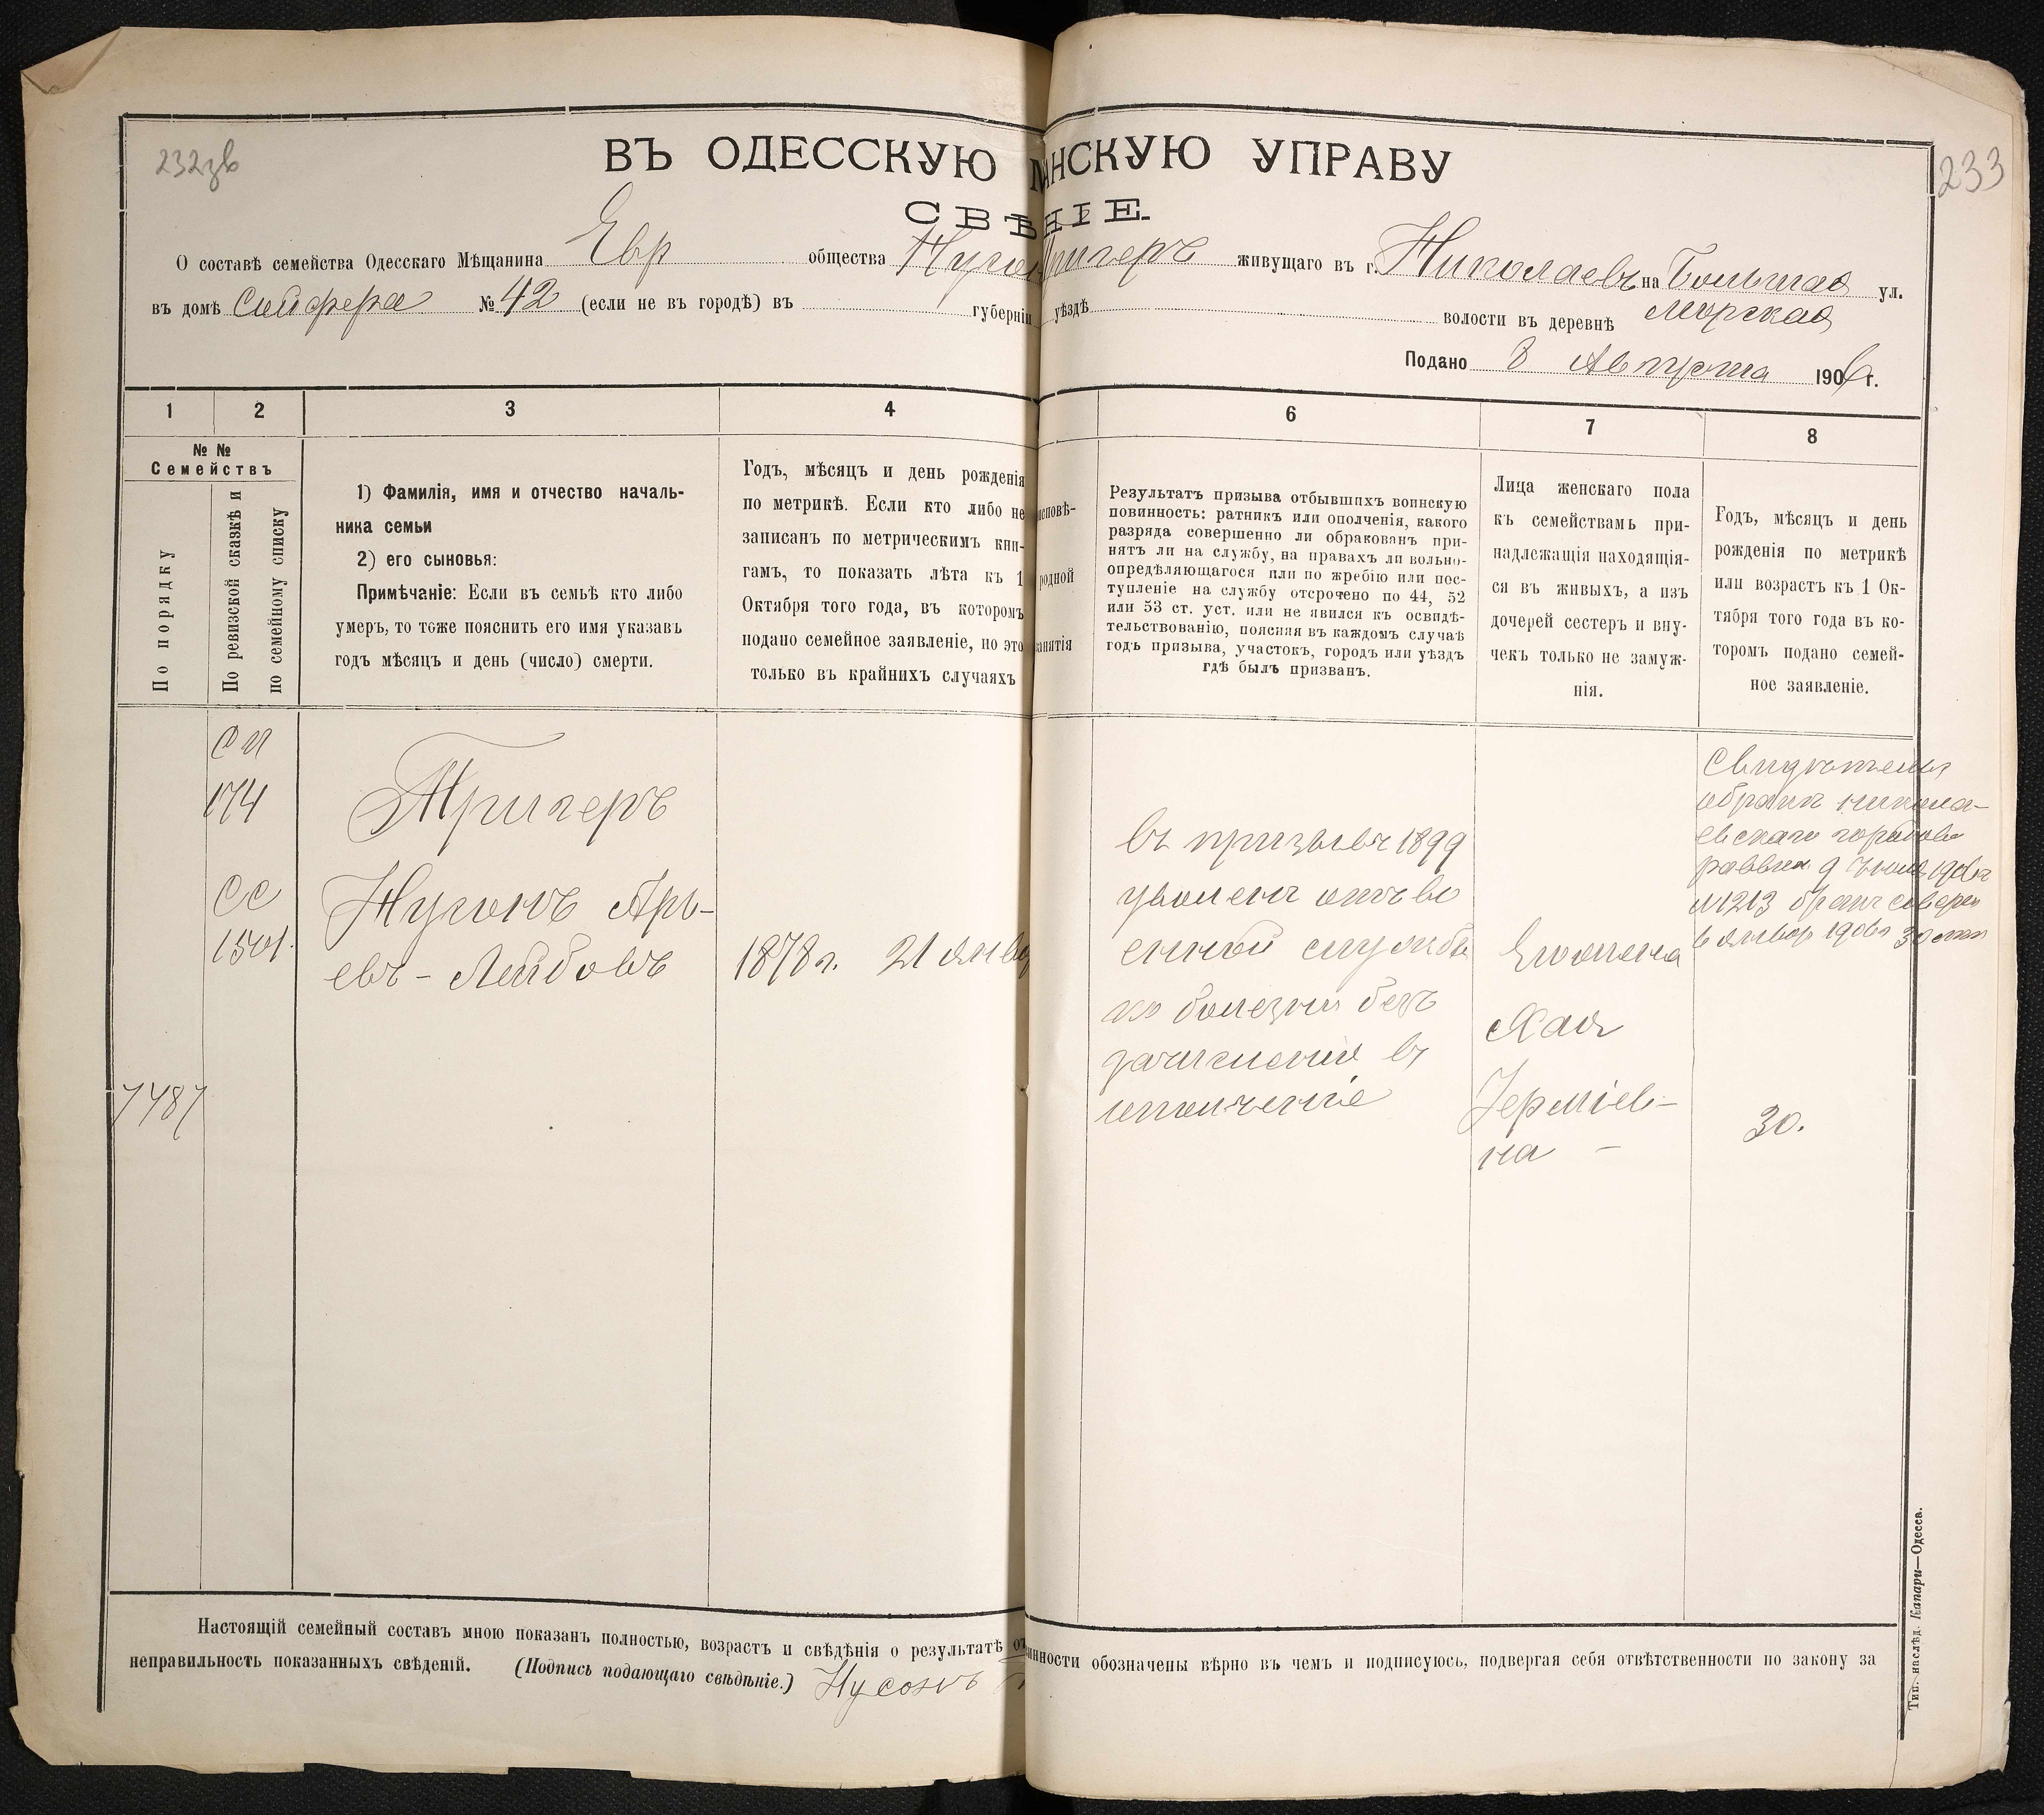 232зв
233
ВЪ ОДЕССКУЮ НСКУЮ УПРАВУ
СВѢНІЕ.
О составѣ семейства Одесскаго Мѣщанина Евр общества живущаго въ г. Николаевъ на Большая ул.
въ домѣ № 42 (если не въ городѣ) въ губерніи уѣздѣ волости въ деревнѣ Морская
Подано 8 Августа 1906 г.
1 2 3 4 6 7 8
№ №
Семействъ
По порядку
По ревизской сказкѣ и
по семейному списку
1) Фамилія, имя и отчество началь-
ника семьи
2) его сыновья:
Примѣчаніе: Если въ семьѣ кто либо
умеръ, то тоже пояснить его имя указавъ
годъ мѣсяцъ и день (число) смерти.
Годъ, мѣсяцъ и день рожденія
по метрикѣ. Если кто либо не
записанъ по метрическимъ кни-
гамъ, то показать лѣта къ 1
Октября того года, въ которомъ
подано семейное заявленіе, но это
только въ крайнихъ случаяхъ
исповѣ-
родной
занятія
Результатъ призыва отбывшихъ воинскую
повинность: ратникъ или ополченія, какого
разряда совершенно ли обракованъ при-
нятъ ли на службу, на правахъ ли вольно-
опредѣляющагося или по жребію или пос-
тупленіе на службу отсрочено по 44, 52
или 53 ст. уст. или не явился къ освидѣ-
тельствованію, поясняя въ каждомъ случаѣ
годъ призыва, участокъ, городъ или уѣздъ
гдѣ былъ призванъ.
Лица женскаго пола
къ семействамъ при-
надлежащія находящія-
ся въ живыхъ, а изъ
дочерей сестеръ и вну-
чекъ только не замуж-
нія.
Годъ, мѣсяцъ и день
рожденія по метрикѣ
или возрастъ къ 1 Ок-
тября того года въ ко-
торомъ подано семей-
ное заявленіе.
174
СС
1501.
7487
Тригеръ
Нусонъ Арь-
евъ-Лейбовъ
1878 г. 21 янва
въ призывъ 1899
уволенъ отъ во
енной службы
по болезни безъ
зачисленія въ
ополченіе
Хая
Іерміев-
на -
о бракѣ никола-
евскаго
раввина 9 1906 г
№ 1213 бракъ
30.
Настоящій семейный составъ мною показанъ полностью, возрастъ и свѣдѣнія о результатѣ от нности обозначены вѣрно въ чемъ и подписуюсь, подвергая себя отвѣтственности по закону за
неправильность показанныхъ свѣденій. (Подпись подающаго свѣдѣніе.) Нусонъ
Тип. наслѣд. Капари—Одесса.